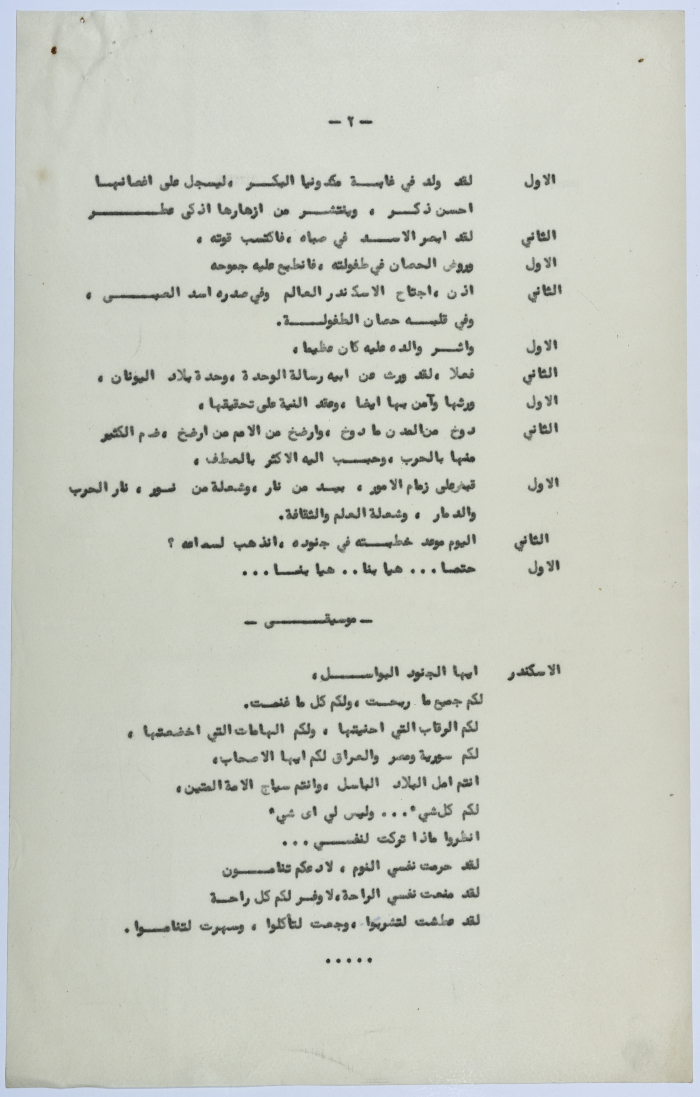 - ٢ -
الاول لقد ولد في غابة مكدونيا البكر ،ليسجل على اغصانها
احسن ذكر ، وينتشر من ازهارها اذكى عطر
الثاني لقد ابصر الاسد في صباه ،فاكتسب قوته ،
الاول وروض الحصان في طفولته ،فانطبع عليه جموحه
الثاني اذن ،اجتاح الاسكندر العالم وفي صدره اسد الصبى ،
وفي قلبه حصان الطفولة.
الاول واثر والده عليه كان عظيما،
الثاني فعلا ،لقد ورث عن ابيه رسالة الوحدة ،وحدة بلاد اليونان ،
الاول ورثها وآمن بها ايضا ،وعقد النية على تحقيقها،
الثاني دوخ من المدن ما دوخ ،وارضخ من الامم من ارضخ ،ضم الكثير
منها بالحرب ،وحبب اليه الاكثر بالعطف ،
الاول قبض على زمام الامور ، بيد من نار ،وشعلة من نور ، نار الحرب
والدمار ، وشعلة العلم والثقافة.
الثاني اليوم موعد خطبته في جنوده ،انذهب لسماعه ؟
الاول حتما ... هيا بنا.. هيا بنا ...
- موسيقى -
الاسكندر ايها الجنود البواسل،
لكم جميع ما ربحت ،ولكم كل ما غنمت.
لكم الرقاب التي احنيتها ، ولكم الهامات التي اخضعتها ،
لكم سورية ومصر والعراق لكم ايها الاصحاب،
انتم امل البلاد الباسل ،وانتم سياج الامة المتين،
لكم كل شيء ... وليس لي اى شيء
انظروا ماذا تركت لنفسي ...
لقد حرمت نفسي النوم ، لادعكم تنامون
لقد منعت نفسي الراحة،لاوفر لكم كل راحة
لقد عطشت لتشربوا ،وجعت لتأكلوا ، وسهرت لتناموا .
.....